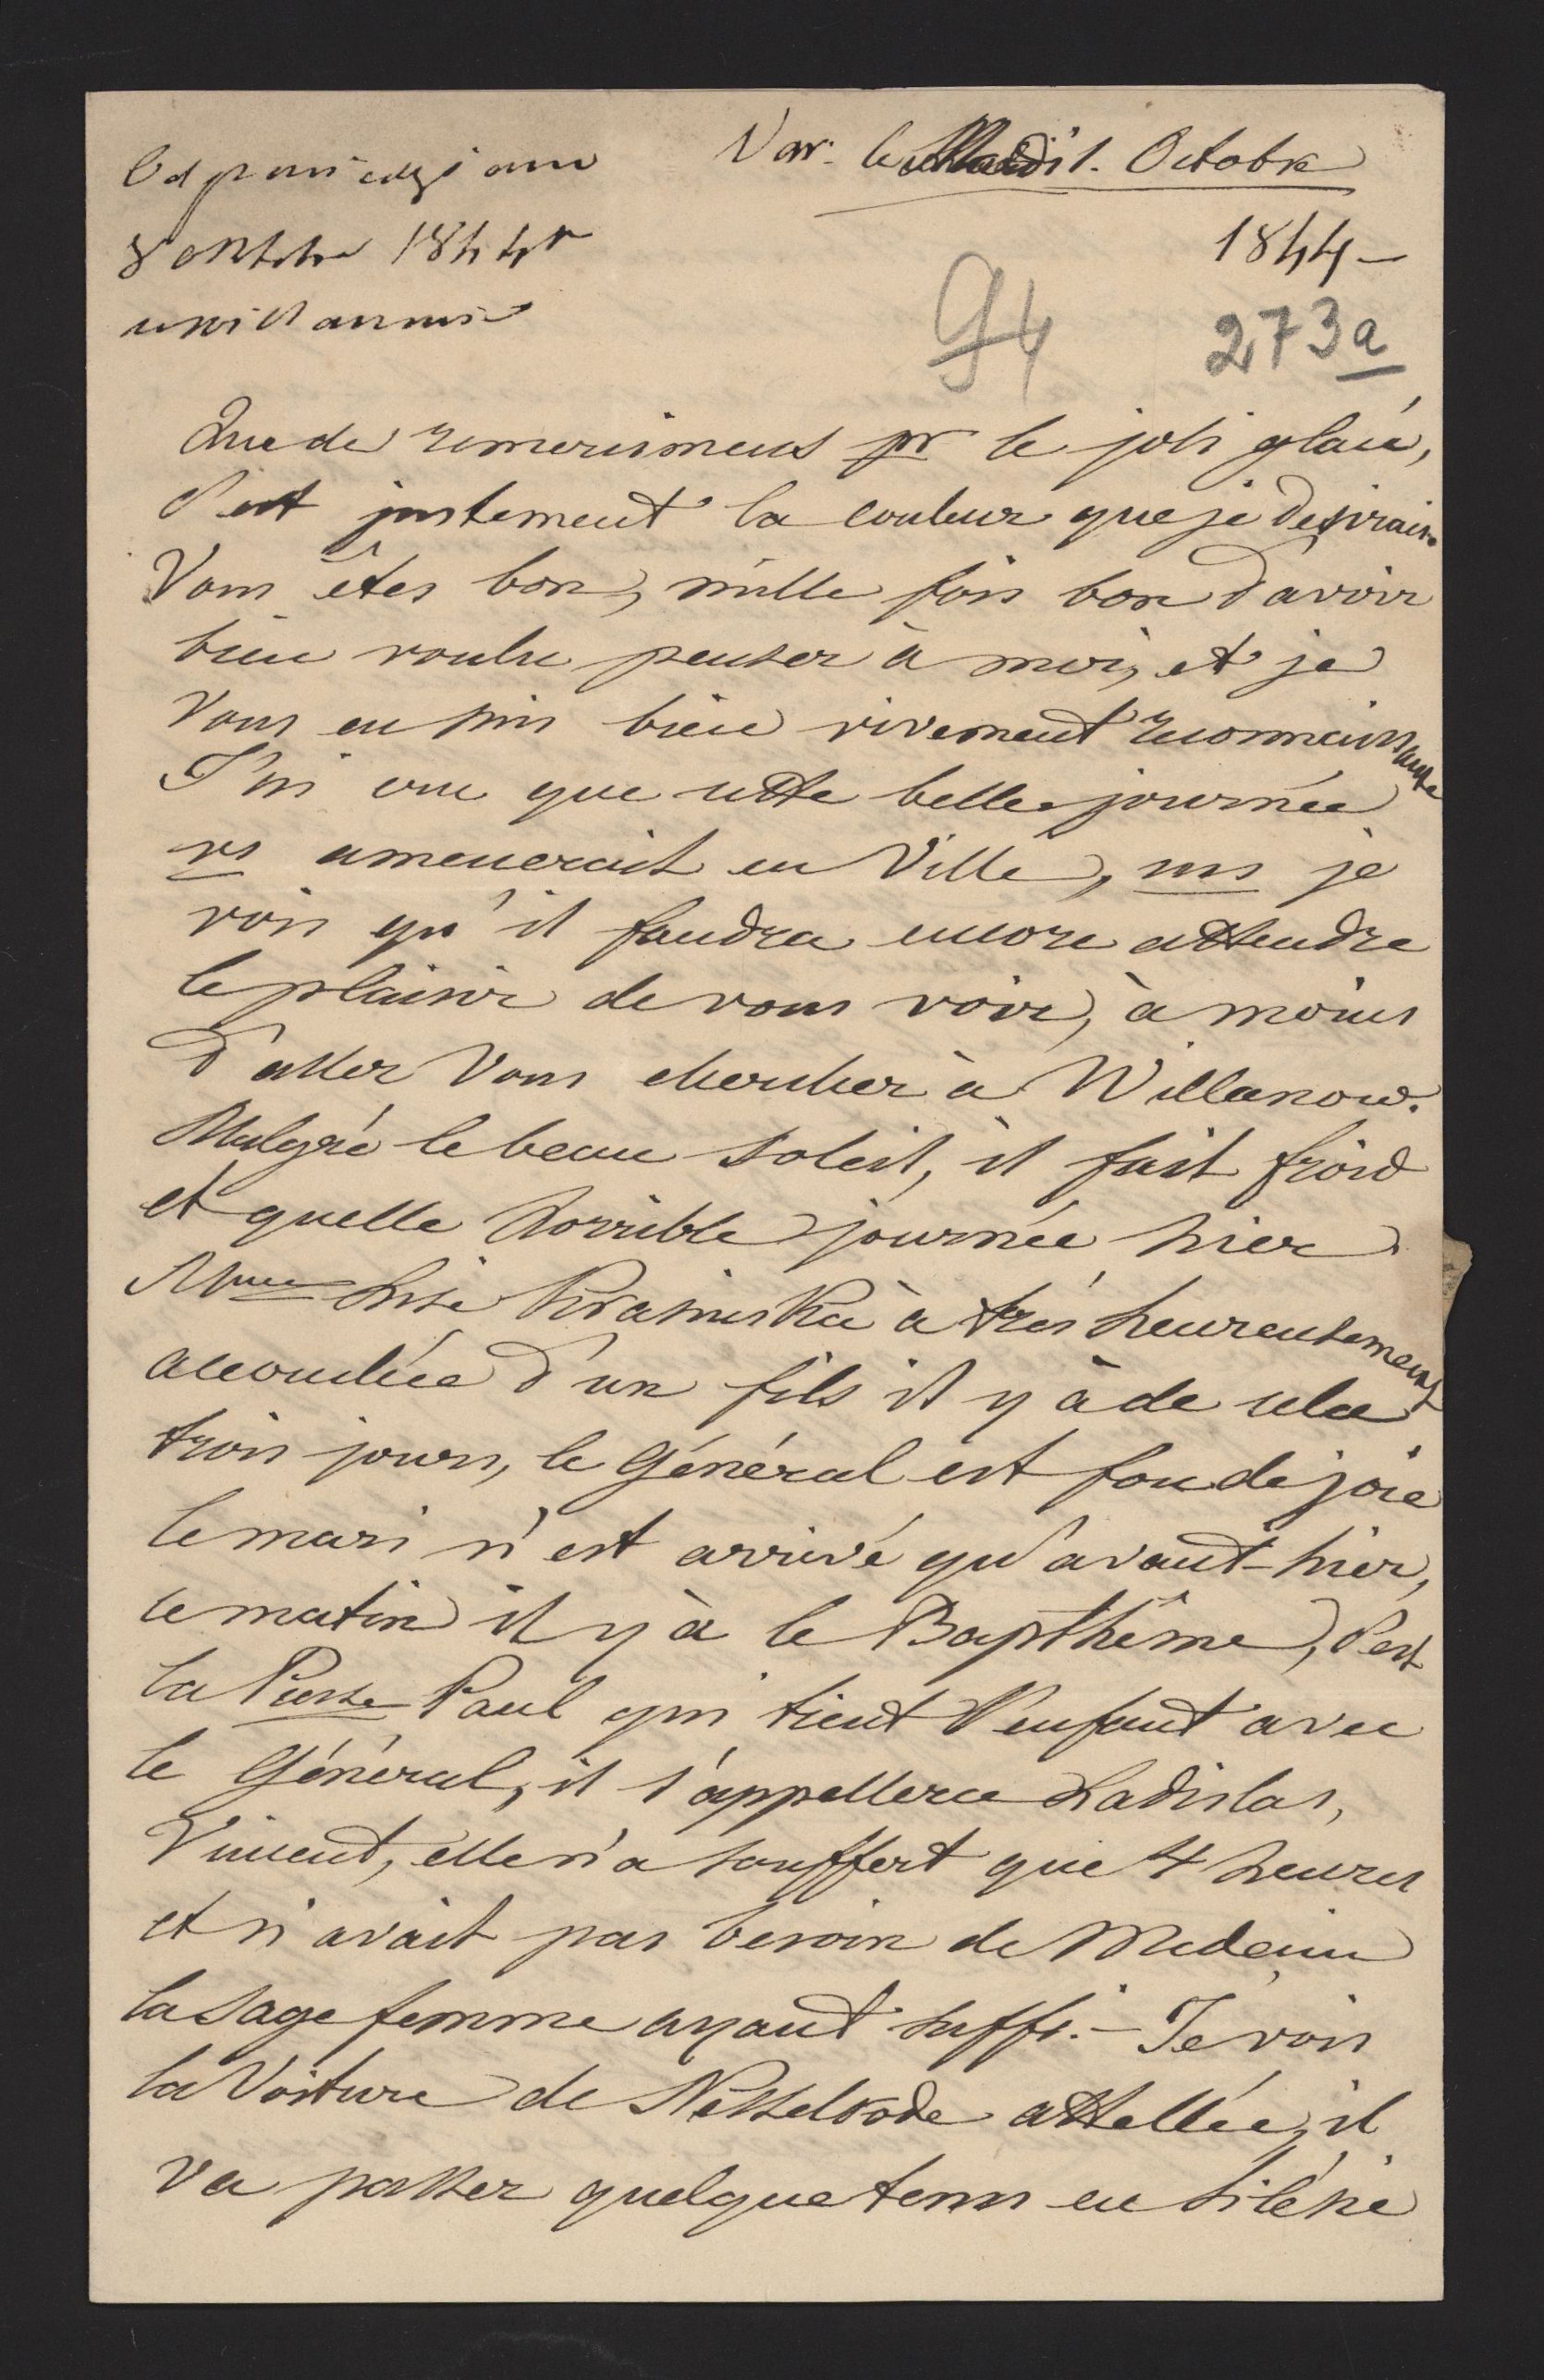 Odpowiedziano
8 oktobra 1844 r
w Willanowie
Var. le Mardi 1. Octobre
1844 –
94
273a
Que de remerciemens pr le joli glacé,
c'est justement la couleur que je desirais.
Vous êtes bon, mille fois bon d'avoir
bien voulu penser à moi, et je
Vous en suis bien vivement reconnaissante
J'ai cru que cette belle journée
vs amenerait en Ville, ms je
vois qu'il faudra encore attendre
le plaisir de vous voir, à moins
d'aller Vous chercher à Willanow.
Malgré le beau soleil, il fait froid
et quelle horrible journée hier
Mme Lise Krasinska à très heureusement
accouchée d'un fils il y à de cela
trois jours, le Général est fou de joie
le mari n'est arrivé qu'avant-hier,
ce matin il y à le Bapthême, c'est
la Pcesse Paul qui tient l'enfant avec
le Général, il s'appellera Ladislas,
Vincent, elle n'a souffert que 4 heures
et n'avait pas besoin de Medecin
la sage femme ayant suffi. – Je vois
la Voiture de Nesselrode attellée, il
va passer quelque tems en Silésie